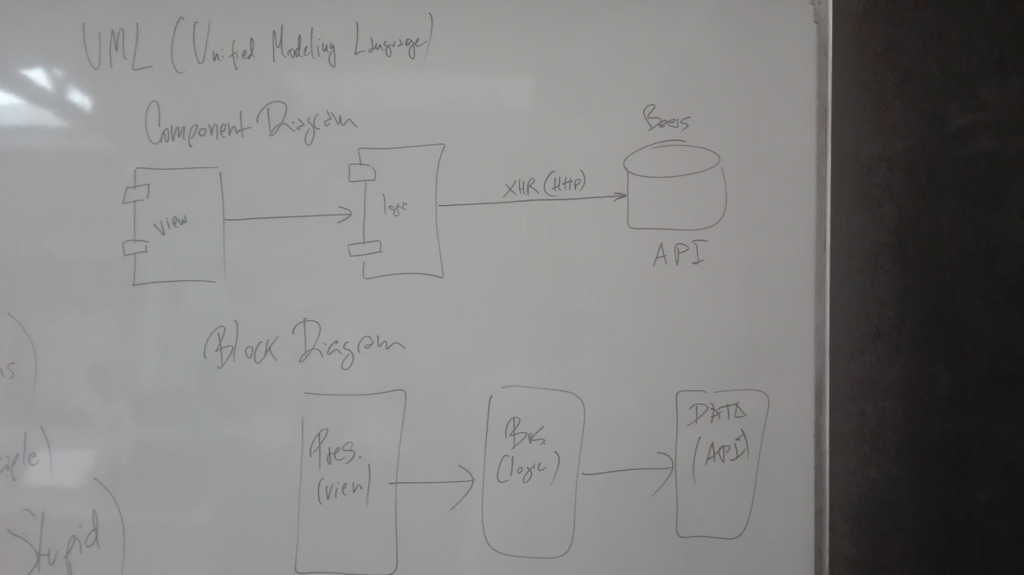 UML (Unified Modeling Language)
Component Diagram
Beers
view
logic
XHR (HTTP)
API
Block Diagram
Pres.
(view)
Bus.
(logic)
DATA
(API)
Stupid)